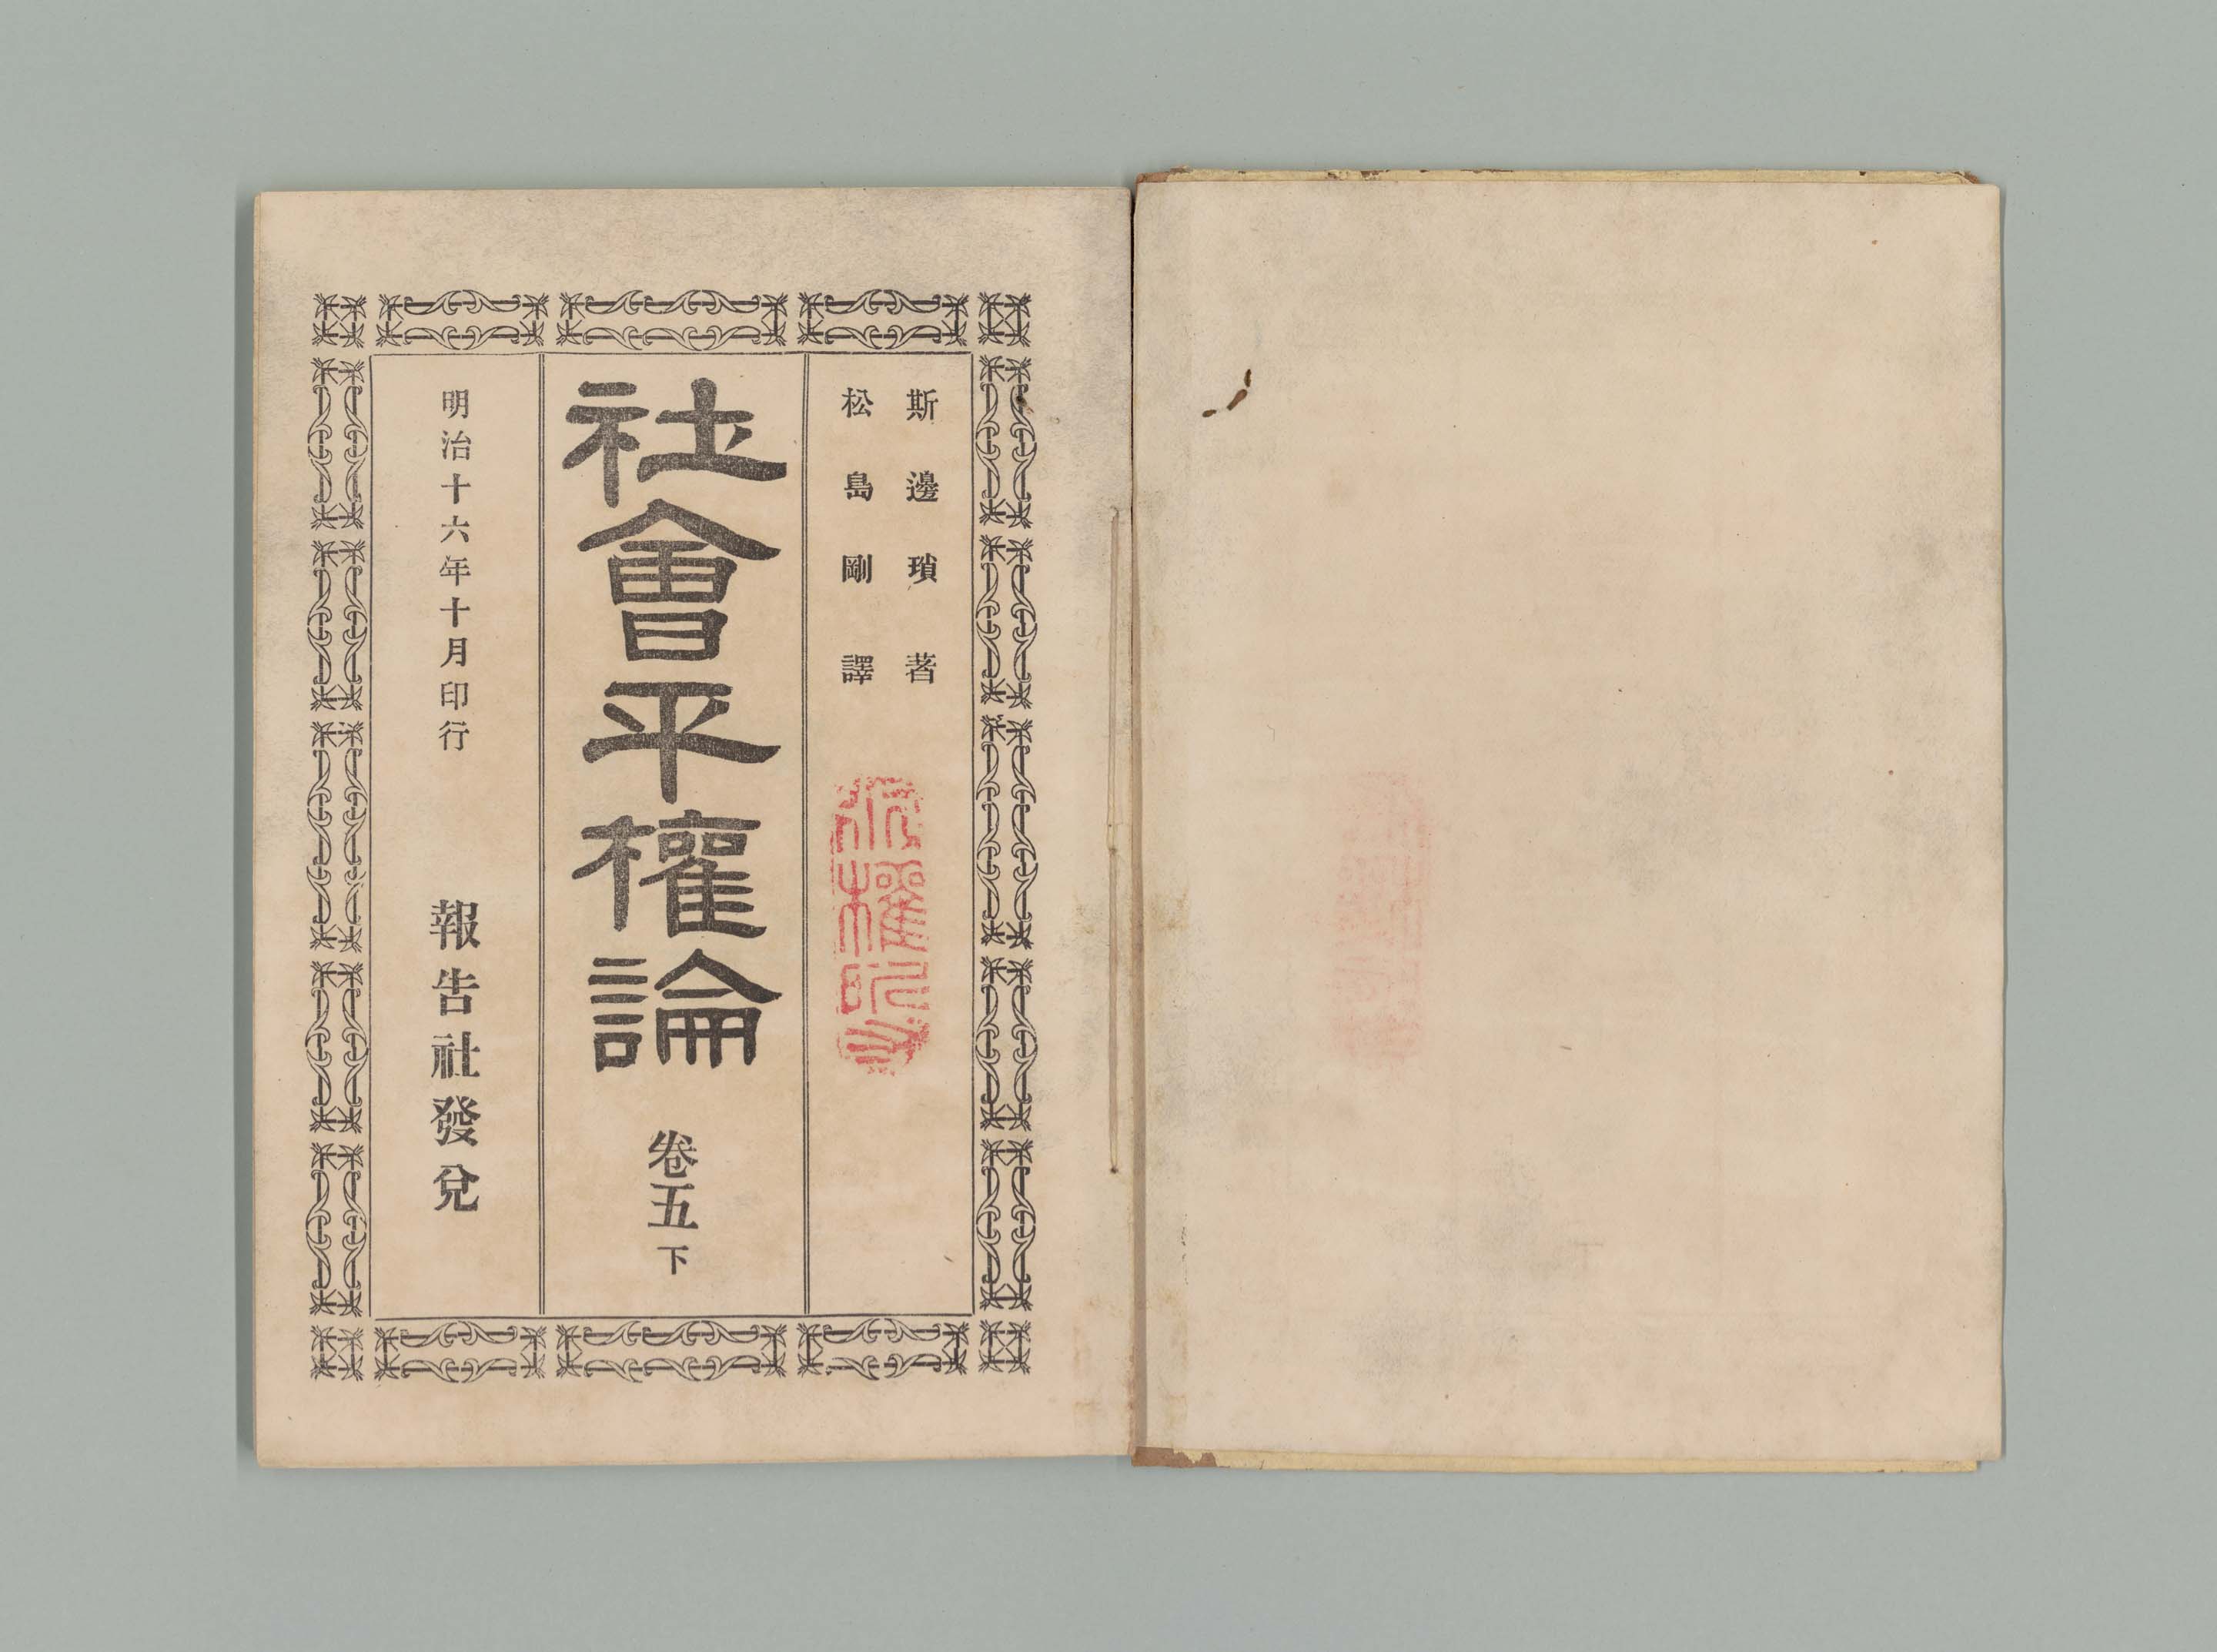 斯邊瑣著
松島剛譯
版權所有
社會平權論 卷五下
明治十六年十月印行 報告社發兌